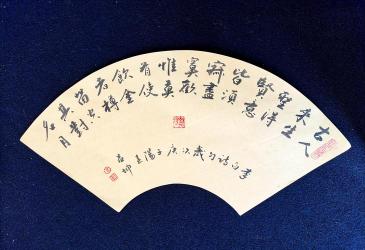 古人
来生
聖得
賢意
皆須
寂盡
寞歡
惟莫
有使
飲金
者樽
留空
其對
名月
李白詩句歲次庚子陽夏
坤